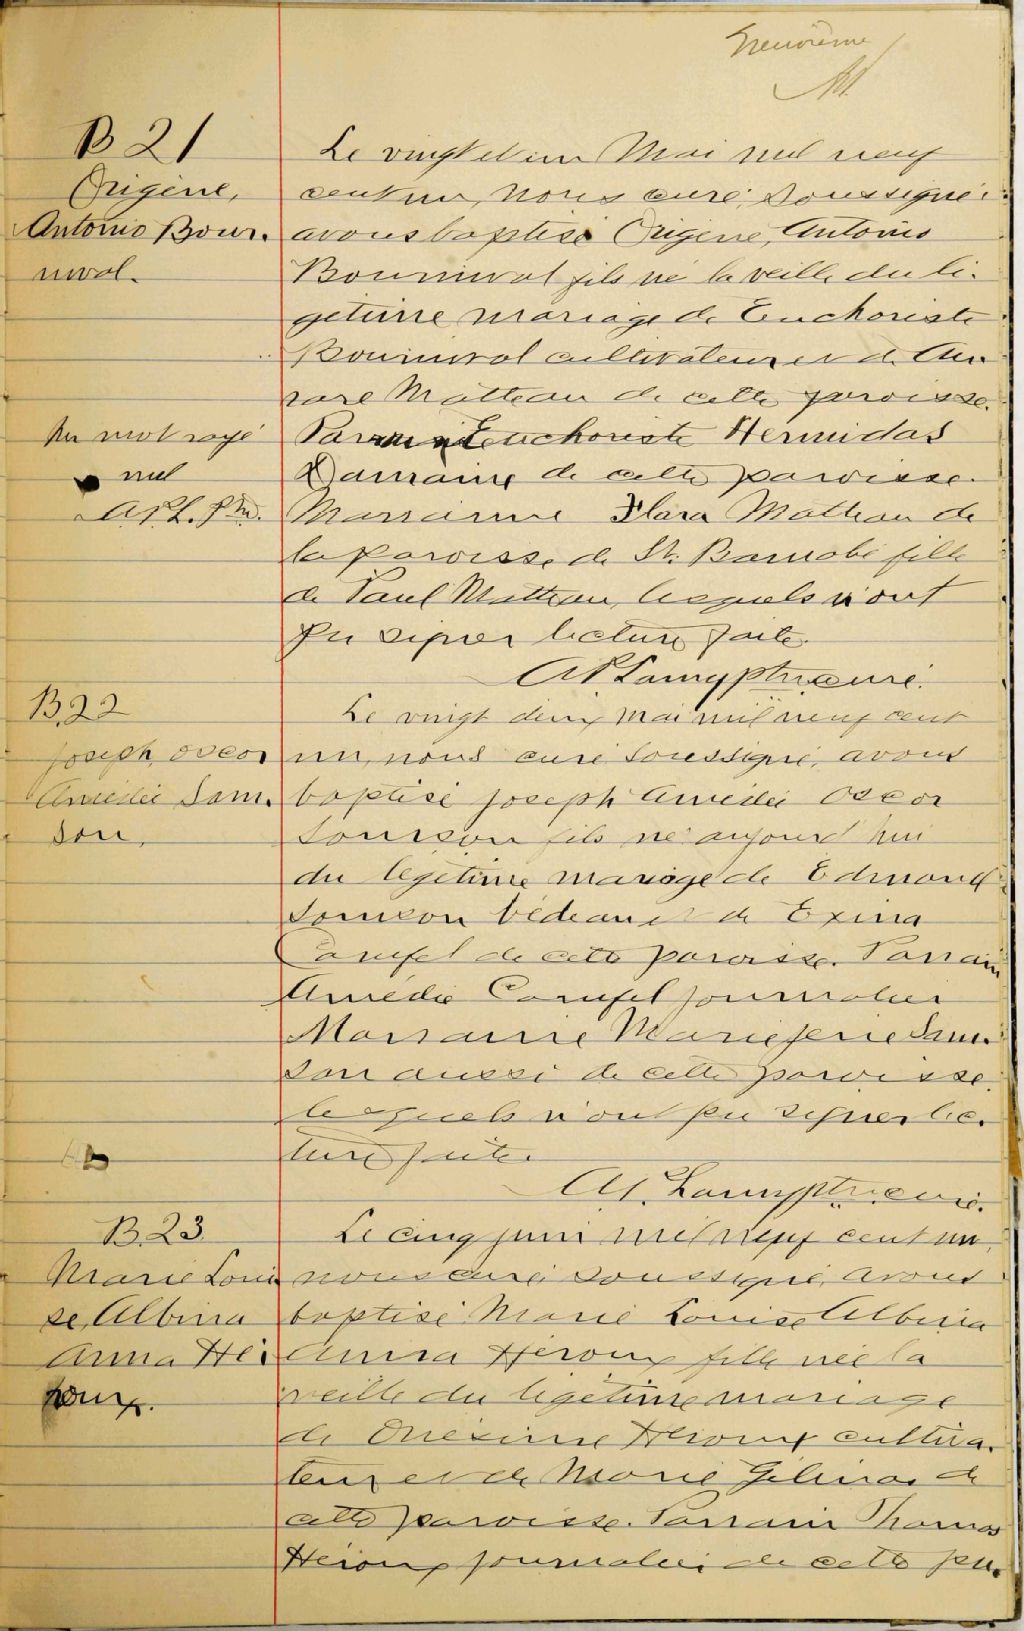 Neuvième
B 21
Origène,
Antonio Bour.
nival.
Le vingt et un Mai mil neuf
cent un, nous curé soussigné
avons baptisé Origène, Antonio
Bournival fils né la veille du lé.
getime mariage de Euchariste
Bournival cultivateur et de Au
rore Matteau de cette paroisse.
Un mot rayé
nul
Parrain Euchariste Hermidas
Lamarre de cette paroisse.
Marraine Flora Matteau de
la paroisse de St. Barnabé fille
de Paul Matteau, lesquels n'ont
pu signer lecture faite.
curé.
B.22
Joseph, Oscar
Amédée Sam.
son,
Le vingt deux Mai mil neuf cent
un, nous curé soussigné, avons
baptisé Joseph Amédée Oscar
Samson fils né aujourd'hui
du legetime mariage de Edmond
Samson bedeau et de Exina
Caufel de cette paroisse. Parrain
Amédée Caufel journalier
Marraine Marie Jene Sam.
son aussi de cette paroisse,
lesquels n'ont pu signer lec.
ture faite.
curé.
B.23
Marie Loui
se, Albina
Anna Hé.
roux.
Le cinq juin mil neuf cent un,
nous curé soussigné, avons
baptisé Marie Louise Albina
Anna Héroux fille née la
veille du légetime mariage
de Onésime Héroux cultiva.
teur et de Marie Gélinas de
cette paroisse. Parrain Thomas
Héroux journalier de cette pa.